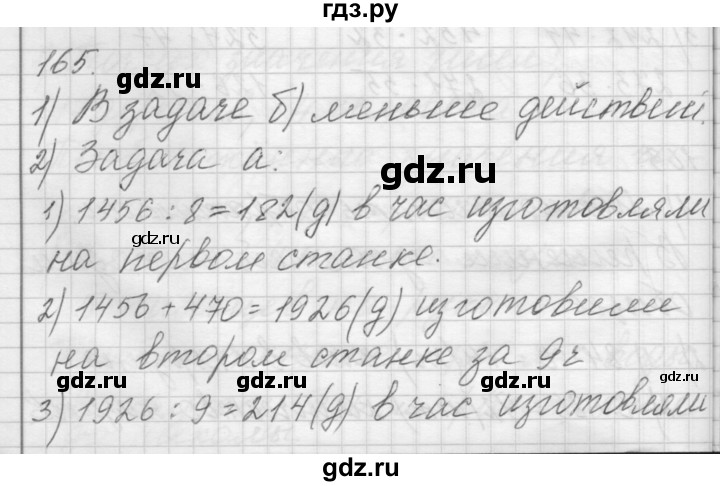 гдз.ру
165.
gdz.ru
1) В задаче б) меньше действий.
2) Задача а:
gdz.ru
1) 1456 : 8 = 182 (д) в час изготовляли
gdz.ru gdz.ru
на первом станке.
2) 1456 + 470 = 1926 (д) изготовили
на втором станке за 9 ч
gdz.ru gdz.ru gdz.ru
3) 1926 : 9 = 214 (д) в час изготовляли
gdz.ru